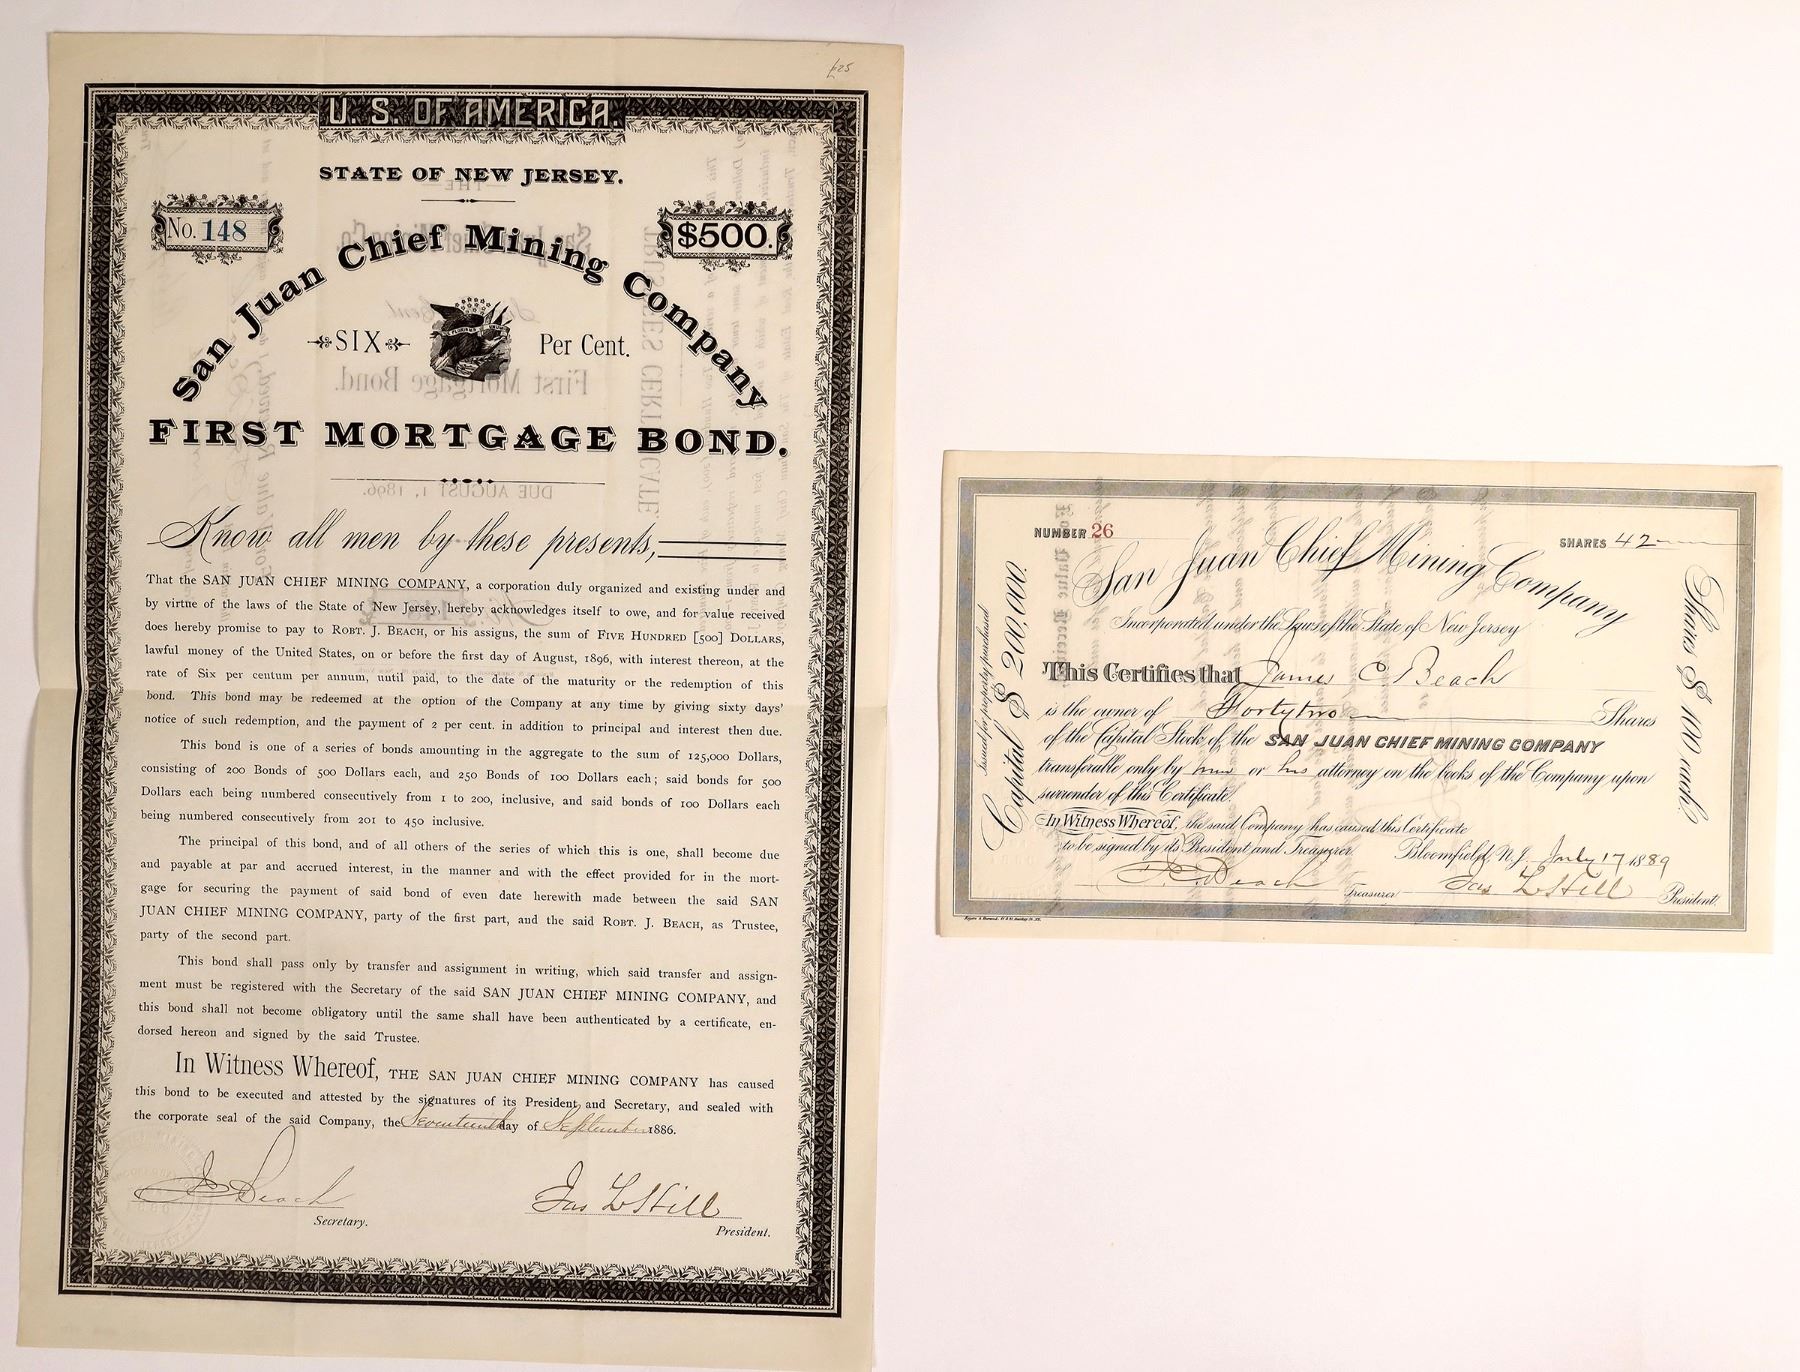 £25
U. S. OF AMERICA.
STATE OF NEW JERSEY.
No. 148
$500.
San Juan Chief Mining Company
SIX Per Cent.
FIRST MORTGAGE BOND.
Know all men by these presents,
That the SAN JUAN CHIEF MINING COMPANY, a corporation duly organized and existing under and
by virtue of the laws of the State of New Jersey, hereby acknowledges itself to owe, and for value received
does hereby promise to pay to ROBT. J. BEACH, or his assigns, the sum of FIVE HUNDRED [500] DOLLARS,
lawful money of the United States, on or before the first day of August, 1896, with interest thereon, at the
rate of Six per centum per annum, until paid, to the date of the maturity or the redemption of this
bond. This bond may be redeemed at the option of the Company at any time by giving sixty days'
notice of such redemption, and the payment of 2 per cent. in addition to principal and interest then due.
This bond is one of a series of bonds amounting in the aggregate to the sum of 125,000 Dollars,
consisting of 200 Bonds of 500 Dollars each, and 250 Bonds of 100 Dollars each; said bonds for 500
Dollars each being numbered consecutively from 1 to 200, inclusive, and said bonds of 100 Dollars each
being numbered consecutively from 201 to 450 inclusive.
The principal of this bond, and of all others of the series of which this is one, shall become due
and payable at par and accrued interest, in the manner and with the effect provided for in the mort-
gage for securing the payment of said bond of even date herewith made between the said SAN
JUAN CHIEF MINING COMPANY, party of the first part, and the said ROBT. J. BEACH, as Trustee,
party of the second part.
This bond shall pass only by transfer and assignment in writing, which said transfer and assign-
ment must be registered with the Secretary of the said SAN JUAN CHIEF MINING COMPANY, and
this bond shall not become obligatory until the same shall have been authenticated by a certificate, en-
dorsed hereon and signed by the said Trustee.
In Witness Whereof, THE SAN JUAN CHIEF MINING COMPANY has caused
this bond to be executed and attested by the signatures of its President and Secretary, and sealed with
the corporate seal of the said Company, the Seventeenth day of September 1886.
Beach
Secretary.
Jas L Hill
President.
NUMBER 26
SHARES 42
San Juan Chief Mining Company
Incorporated under the Laws of the State of New Jersey
This Certifies that James C Beach
is the owner of Forty two Shares
of the Capital Stock of the SAN JUAN CHIEF MINING COMPANY
transferable only by him or his attorney on the books of the Company upon
surrender of this Certificate.
In Witness Whereof, the said Company has caused this Certificate
to be signed by its President and Treasurer
Bloomfield, N.J. July 17 1889
Beach Treasurer Jas L Hill President.
Issued for property purchased
Capital $200,000.
Shares $100 each.